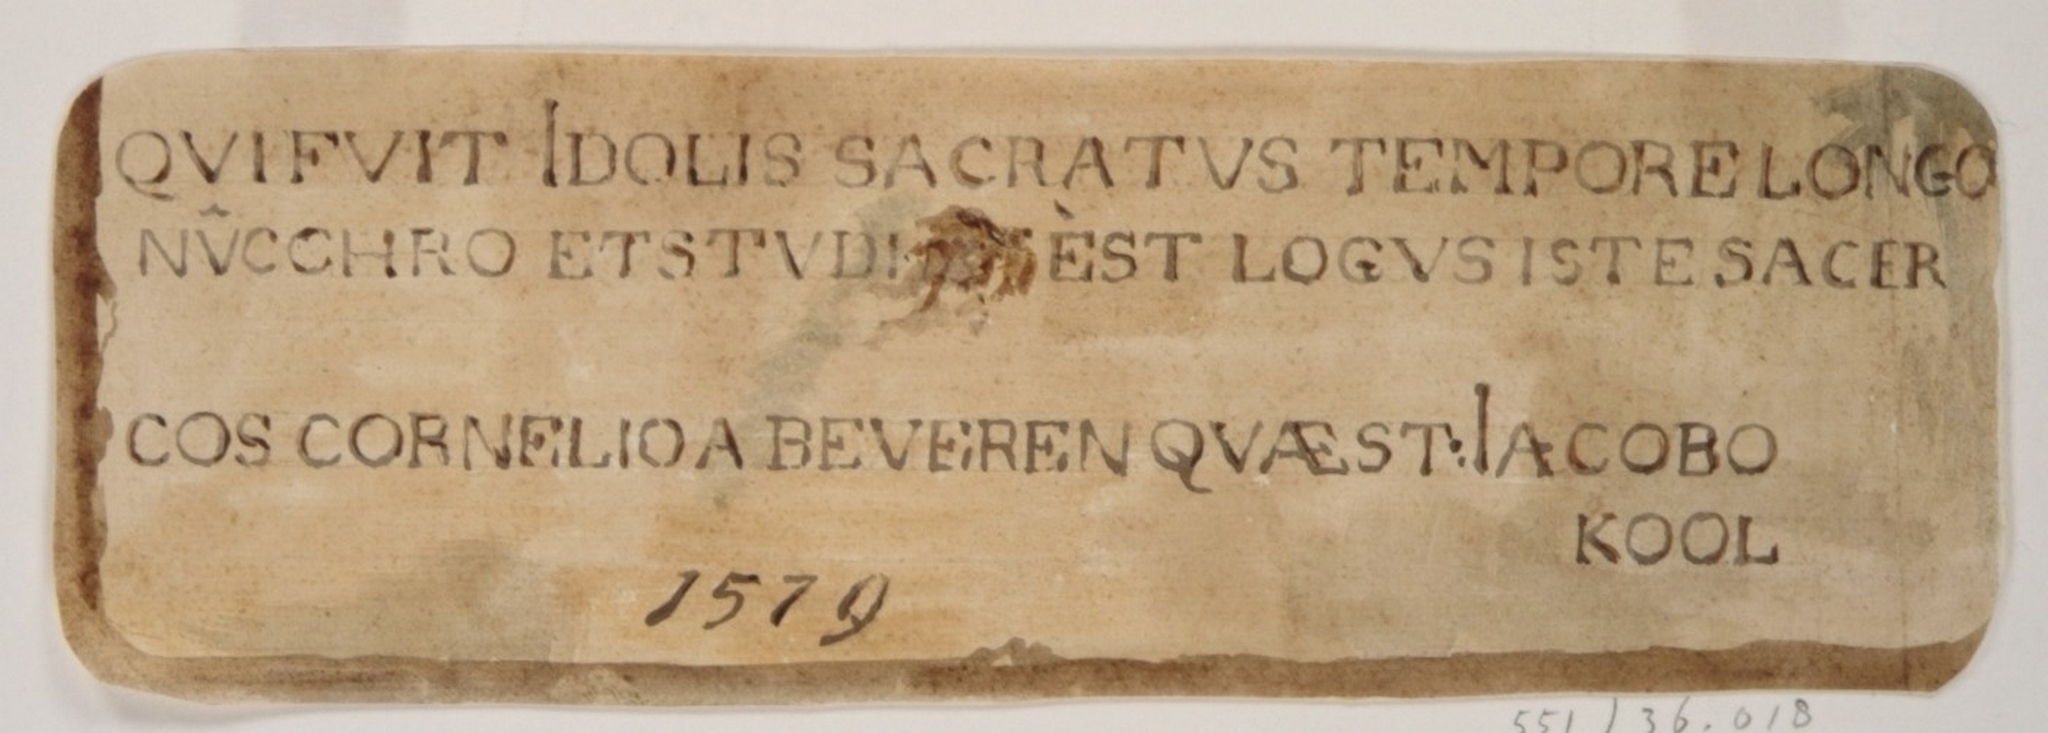 QVI FVIT IDOLIS SACRATVS TEMPORE LONGO
NV̂CCHRO ET STVDI ÈST LOGVS ISTE SACER
COS CORNELIO A BEVEREN QVÆST: IACOBO
KOOL
1579
551 / 36.018